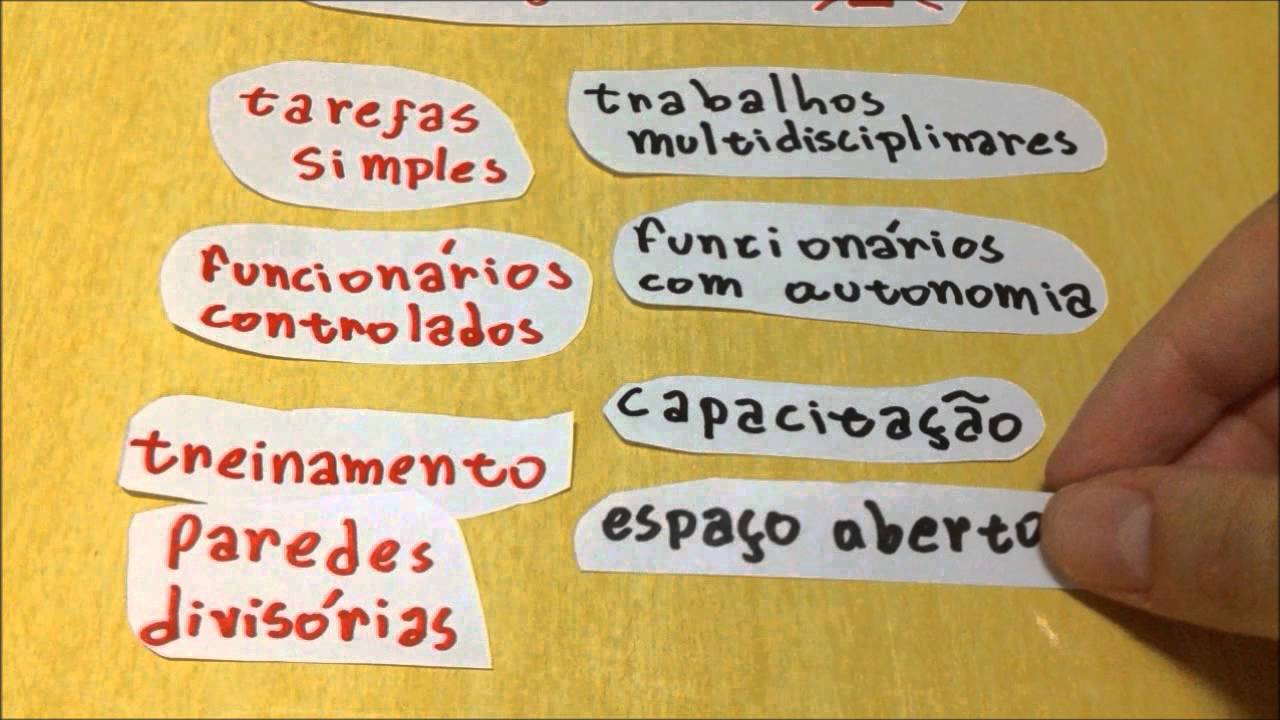 tarefas
simples
trabalhos
multidisciplinares
funcionários
controlados
funcionários
com autonomia
treinamento
capacitação
paredes
divisórias
espaço aberto